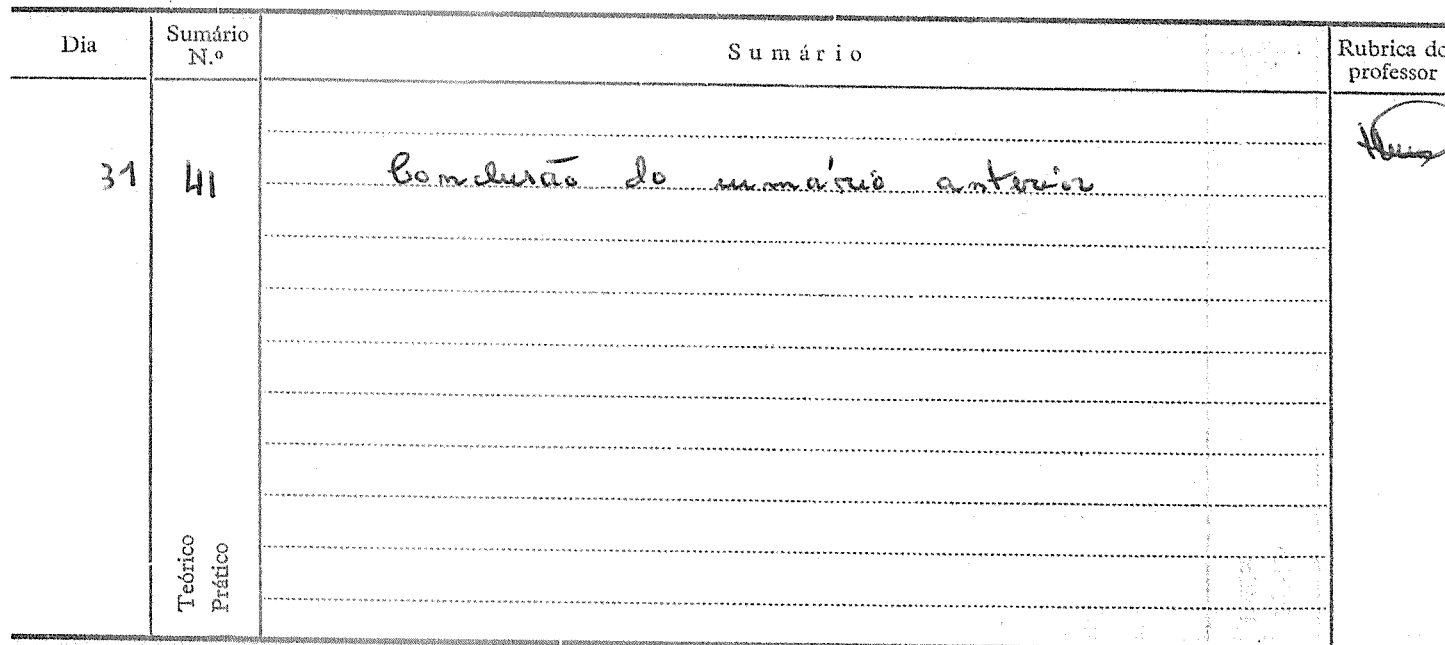 Dia
Sumário
N.º
Sumário
Rubrica do
professor
31
41
Conclusão do sumário anterior
Teórico
Prático